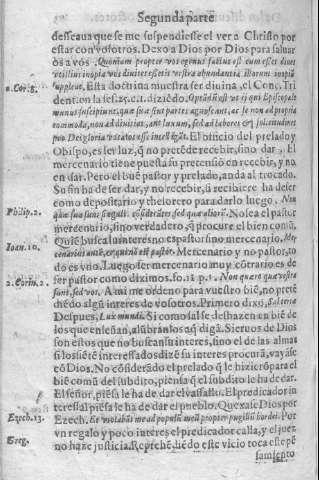 Segunda parte
desseaua que se me suspendiesse el ver a Christo por
estar con vosotros. Dexo a Dios por Dios para saluar
os a vos. Quoniam propter vos egenus factus est cum esset diues
vt illius inopia vos diuites essetis vestra abundantia illorum inopiã
2. Cor. 8.
suppleat. Esta doctrina muestra ser diuina, el Conc. Tri
dent. en la ses. 25. c. 1. diziẽdo.
munus susceperint, quæ sua sint partes agnoscant, ac se non ad propria
commoda, non ad diuitias, aut luxum, sed ad labores & solicitudines
pro Dei gloria vocatos esse intelligãt. El officio del prelado y
Obispo, es ser luz, q̃ no pretẽde recebir, sino dar. El
mercenario tiene puesta su pretensiõ en recebir, y no
en dar. Pero el buẽ pastor y prelado, anda al trocado.
Su fin ha de ser dar, y no recebir, si recibiere ha de ser
como depositario y thesorero para darlo luego. Non
Philip. 2.
quæ sua sunt singuli considerãtes sed quæ aliorũ. No sea el pastor
mercenario, sino verdadero, q̃ procure el bien comũ.
Quiẽ busca su interes no es pastor sino mercenario. Mer
Ioan. 10.
cenarius autẽ, et qui nõ est pastor. Mercenario y no pastor, to
do es vno. Luego ser mercenario muy cõtrario es de
ser pastor como diximos. fo. 12 p. 1. Non quæro quæ vestra
2. Corin. 2.
sunt, sed vos. A mi me ordeno para vuestro biẽ, no pretẽ
diẽdo algũ interes de vosotros. Primero dixo, Sal terræ
Despues, Lux mundi. Si como sal se deshazen en biẽ de
los que enseñan, alũbran los aq̃ digã. Sieruos de Dios
son estos que no buscan su interes, sino el de las almas
si los siẽtẽ interessados dizẽ su interes procurã, vayãse
cõ Dios. No cõsiderãdo el prelado q̃ le hizierõ para el
biẽ comũ del subdito, piensa q̃ el subdito le ha de dar.
El señor, piẽsa le ha de dar el vassallo. El predicador in
teressal piẽsa le ha de dar el pueblo. Quexase Dios por
Ezech. 13.
Ezech. Et violabãt me ad populũ meũ propter pugillũ hordei. Por
Greg.
vn regalo y poco interes el predicador calla, y el juez
no haze justicia. Reprehẽdiẽdo este vicio toca este pẽ
samiento